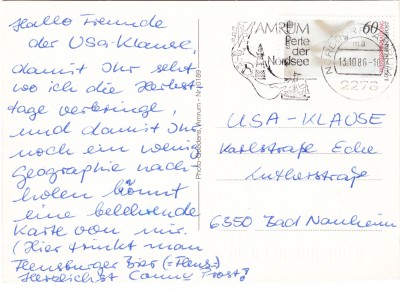 Hallo Freunde
der USA-Klause,
damit Ihr seht
wo ich die Herbst-
tage verbringe,
und damit Ihr
noch ein wenig
Geographie nach-
holen könnt
eine belehrende
Karte von mir.
(Hier trinkt man
Flensburger Bier (=Flens-)
Herzlichst Prost!
AMRUM
Perle
der
Nordsee
60
13.10.86
2278
USA-KLAUSE
Karlstraße Ecke
Lutherstraße
6350 Bad Nauheim